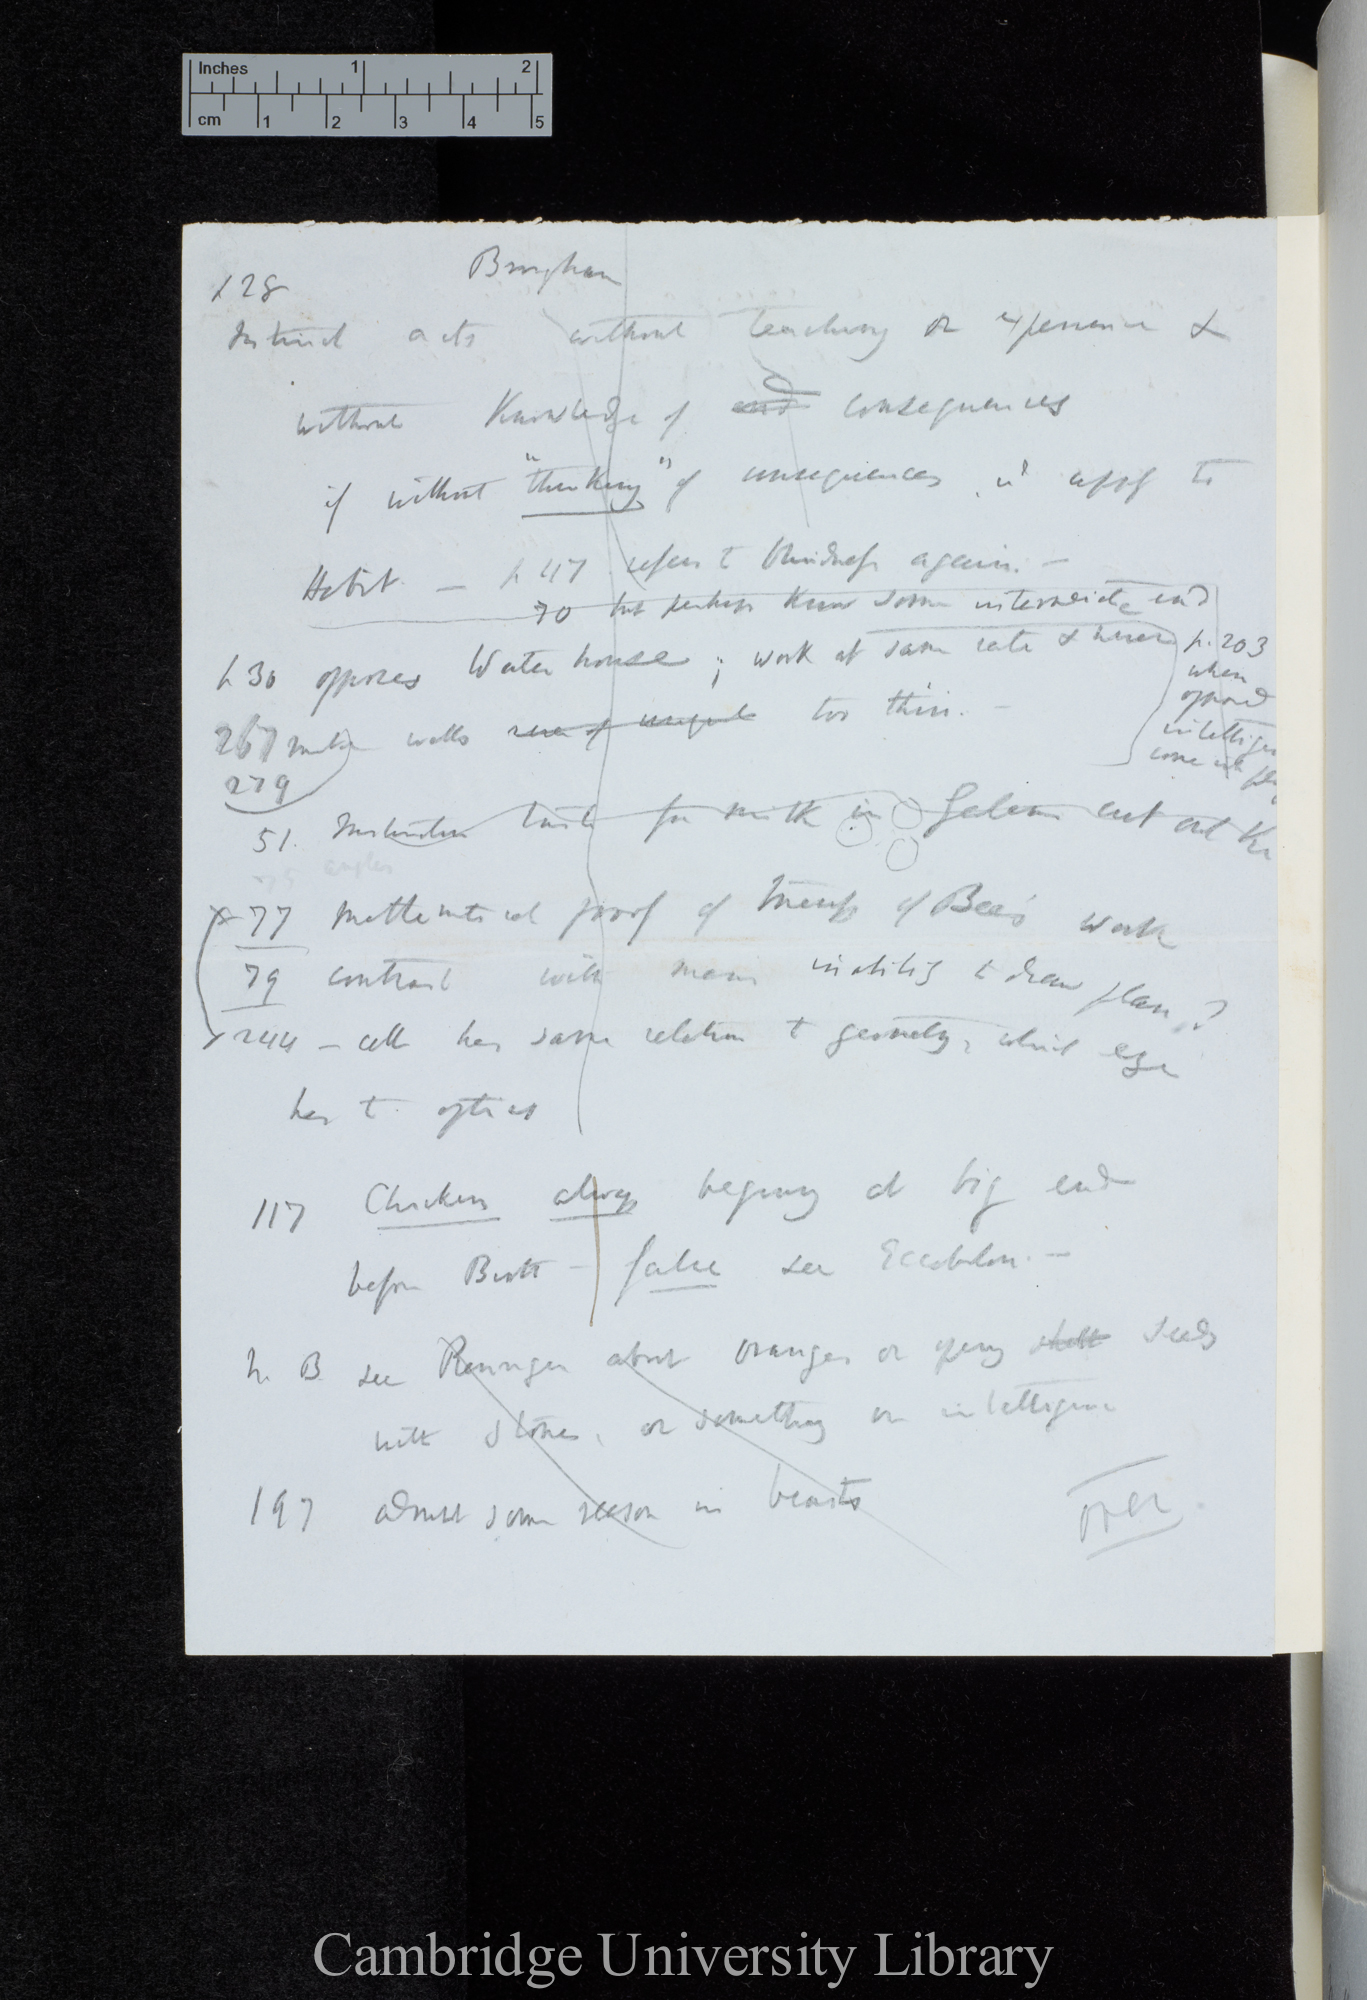 Inches 1 2
cm 1 2 3 4 5
Brougham
p 28
Instinct acts without teaching or experience &
without knowledge of end consequences
if without "thinking" of consequences, it apply to
Habit. — p 47 refers to blindness again. —
70 but perhaps know some intermediate end
p 30 opposes Waterhouse; work at same rate & never
p. 203
when
opposed
267 makes walls too thin. —
279
51. taste for milk in cut out
angles
77 Mathematical proof of of Bee's work
79 contrast with man inability to draw plan?
244 — cell has same relation to geometry, which eye
has to optics
117 Chickens always begining at big end
before Birth — false see
N. B. see Rengger about oranges or opening shell seeds
with stones, or something on intelligence
197 admit some reason in beasts
over
Cambridge University Library